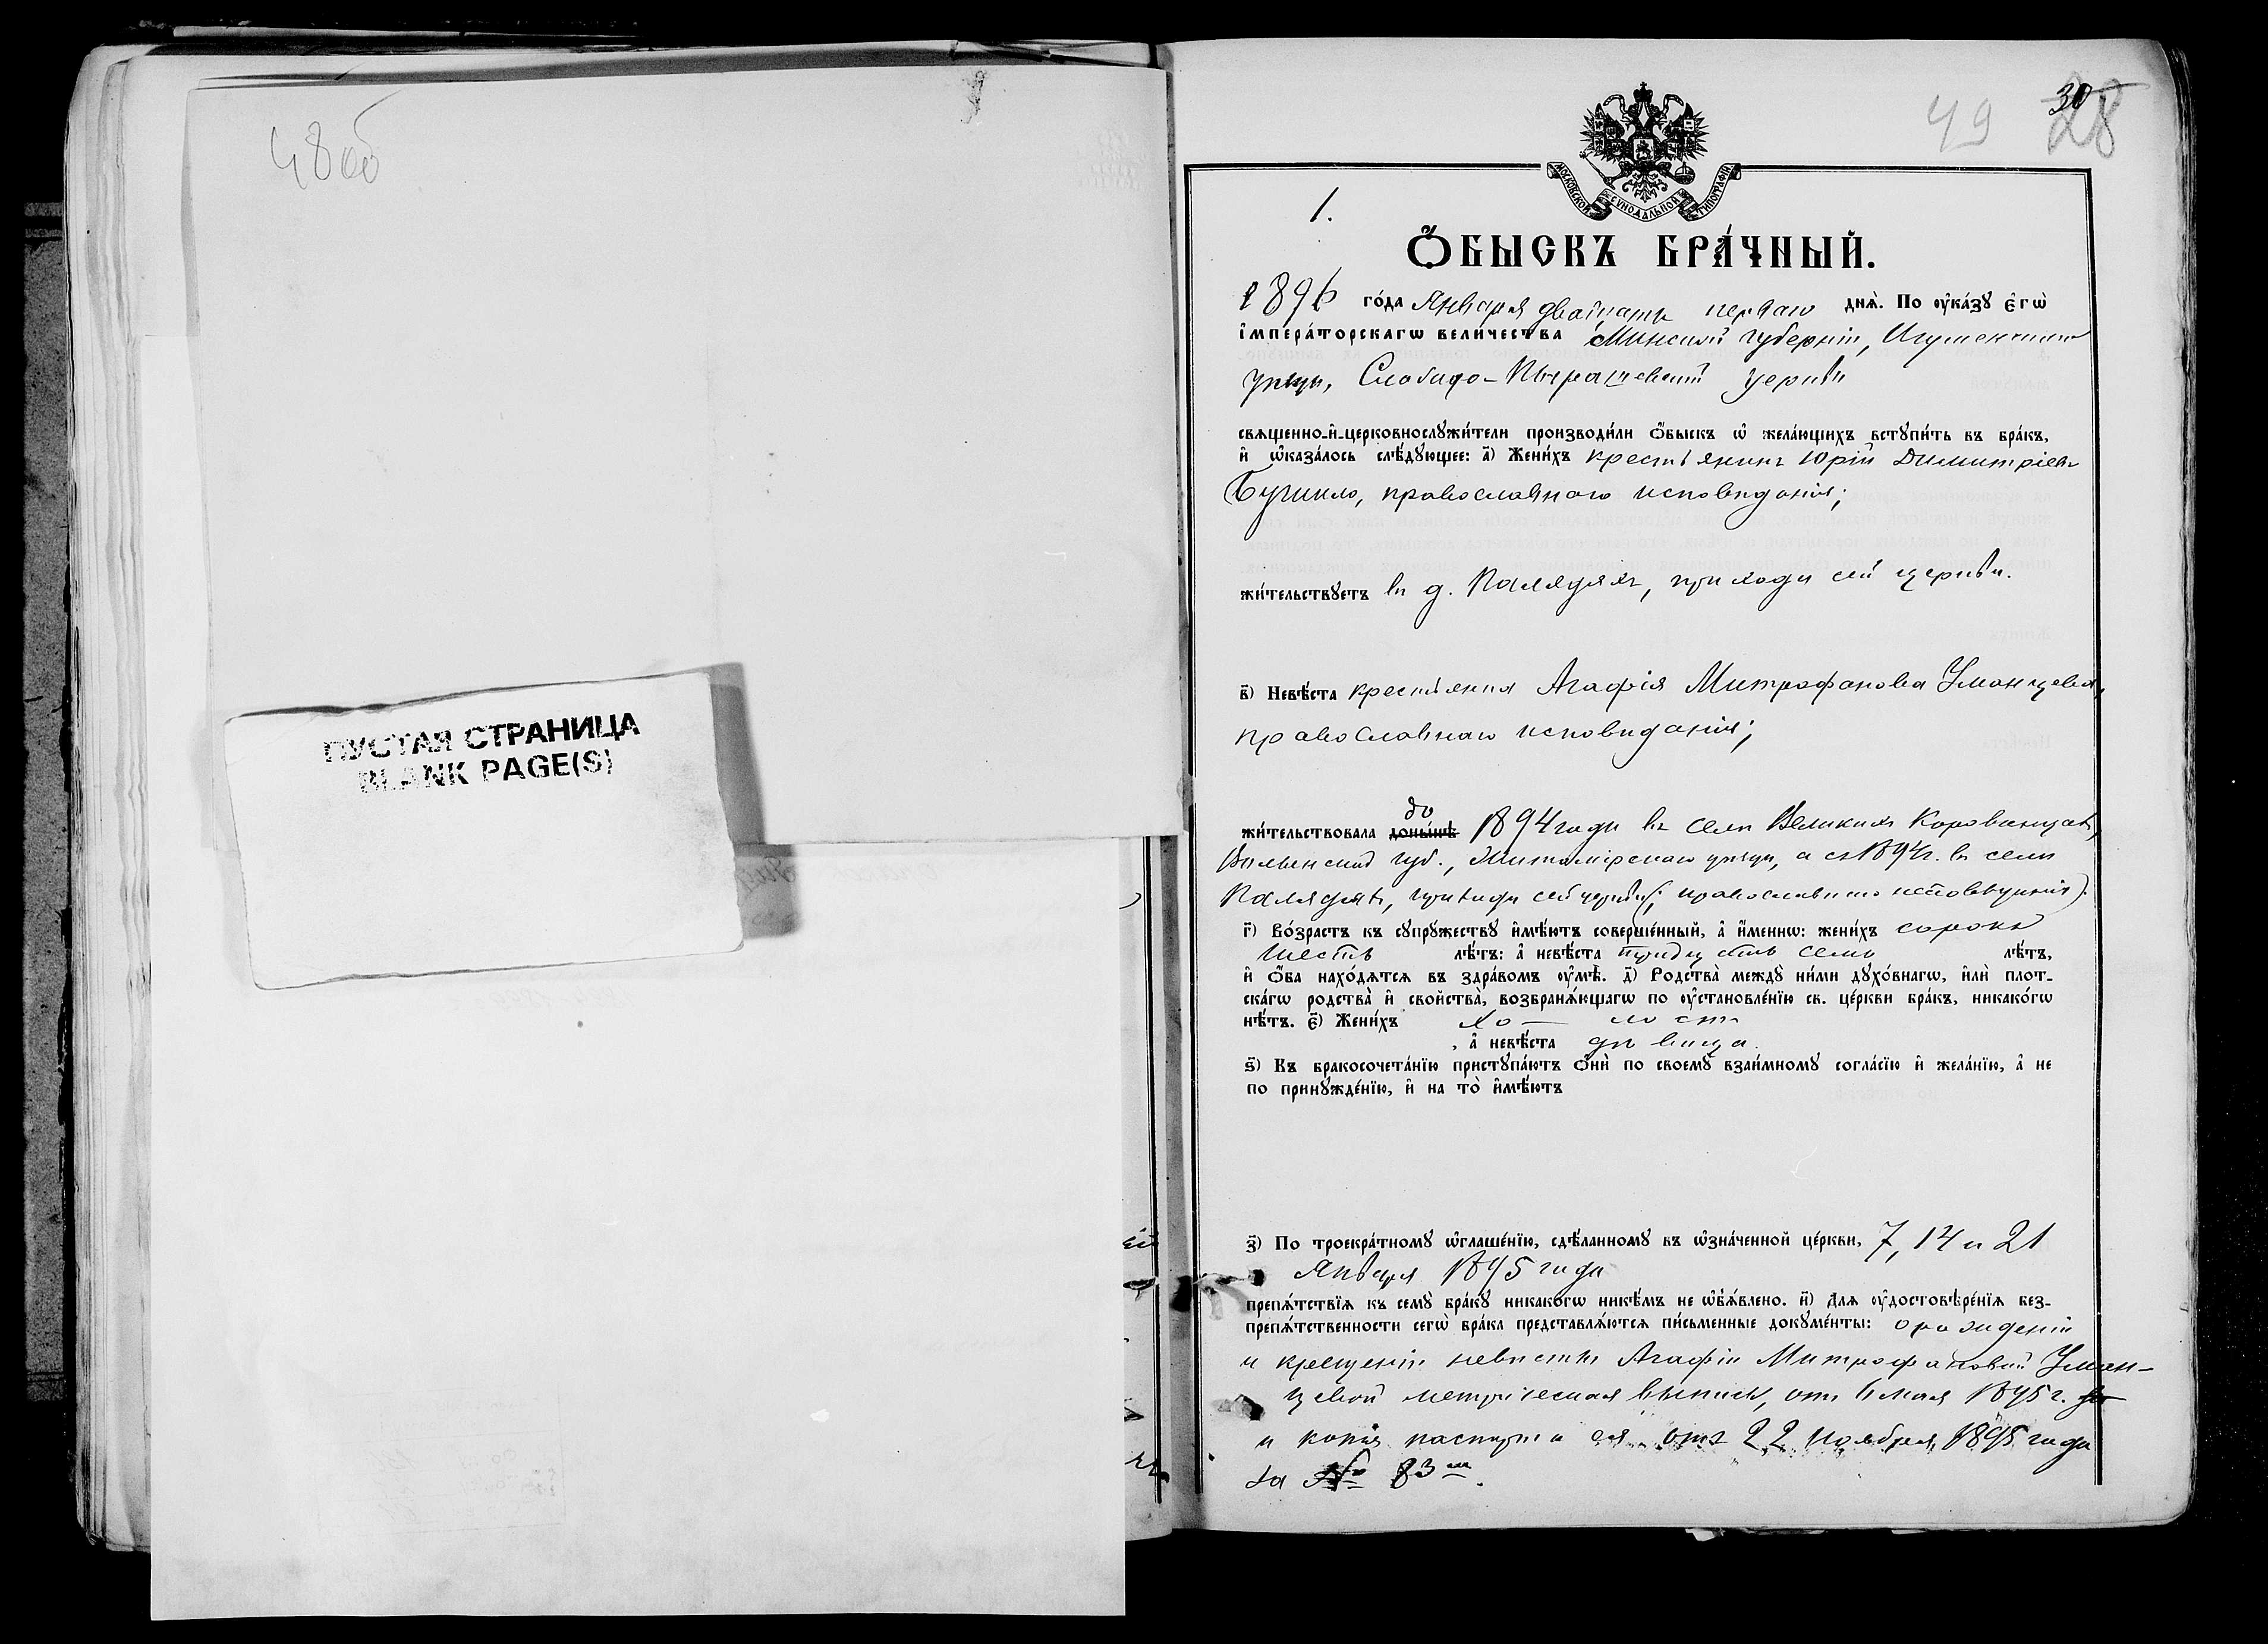 48 об
ПУСТАЯ СТРАНИЦА
BLANK PAGE(S)
49 30 28
МОСКОВСКОЙ СѴНОДАЛЬНОЙ ТИПОГРАФІИ
1.
Ѻ҆БЫСКЪ БРА́ЧНЫЙ.
1896 го́да Января двадцать перваго днѧ̀. По ᲂу҆ка́зꙋ є҆гѡ̀
і҆мпера́торскагѡ вели́чества Минской губерніи, Игуменскаго
уѣзда, Слободо-Пырашевской церкви
свѧщенно-и҆-церковнослꙋжи́тели производи́ли ѻ҆́быскъ ѡ҆ жела́ющихъ встꙋпи́ть въ бра́къ,
и҆ ѡ҆каза́лось слѣ́дꙋющее: а҃) Жени́хъ крестьянинъ Юрій Димитріевъ
православнаго исповѣданія;
жи́тельствꙋетъ въ д. Колядахъ, прихода сей церкви.
в҃) Невѣ́ста крестьянка Агафія Митрофанова Уманцева,
православнаго исповѣданія;
жи́тельствовала доны́нѣ до 1894 года въ селѣ Великихъ Коровинцахъ,
Волынской губ., Житомірскаго уѣзда, а съ 1894 г. въ селѣ
Колядахъ, прихода сей церкви (православнаго исповѣданія).
г҃) Во́зрастъ къ сꙋпрꙋ́жествꙋ и҆мѣ́ютъ соверше́нный, а҆ и҆́меннѡ: жени́хъ сорокъ
шесть лѣ́тъ: а҆ невѣ́ста тридцать семь лѣ́тъ,
и҆ ѻ҆́ба нахо́дѧтсѧ въ здра́вомъ ᲂу҆мѣ̀. д҃) Родства̀ междꙋ̀ ни́ми дꙋхо́внагѡ, и҆лѝ плот-
ска́гѡ родства̀ и҆ сво́йства, возбранѧ́ющагѡ по ᲂу҆становле́нїю св. це́ркви бра́къ, никако́гѡ
нѣ́тъ. є҃) Жени́хъ хо— лостъ
, а҆ невѣ́ста дѣвица.
ѕ҃) Къ бракосочета́нїю пристꙋпа́ютъ ѻ҆нѝ по своемꙋ̀ взаи́мномꙋ согла́сїю и҆ жела́нїю, а҆ не
по принꙋжде́нїю, и҆ на то̀ и҆мѣ́ютъ
з҃) По троекра́тномꙋ ѡ҆глаше́нїю, сдѣ́ланномꙋ въ ѡ҆зна́ченной це́ркви, 7, 14 и 21
Января 1895 года
препѧ́тствїѧ къ семꙋ̀ бра́кꙋ никако́гѡ никѣ́мъ не ѡ҆б̾ѧ́влено. и҃) Длѧ ᲂу҆достовѣре́нїѧ без-
препѧ́тственности сегѡ̀ бра́ка представлѧ́ютсѧ пи́сьменные докꙋме́нты: о рожденіи
и крещеніи невѣсты Агафіи Митрофановой Уман-
цевой метрическая выпись, отъ 6 мая 1895 г.
и копія паспорта ея отъ 22 Ноября 1895 года
за №